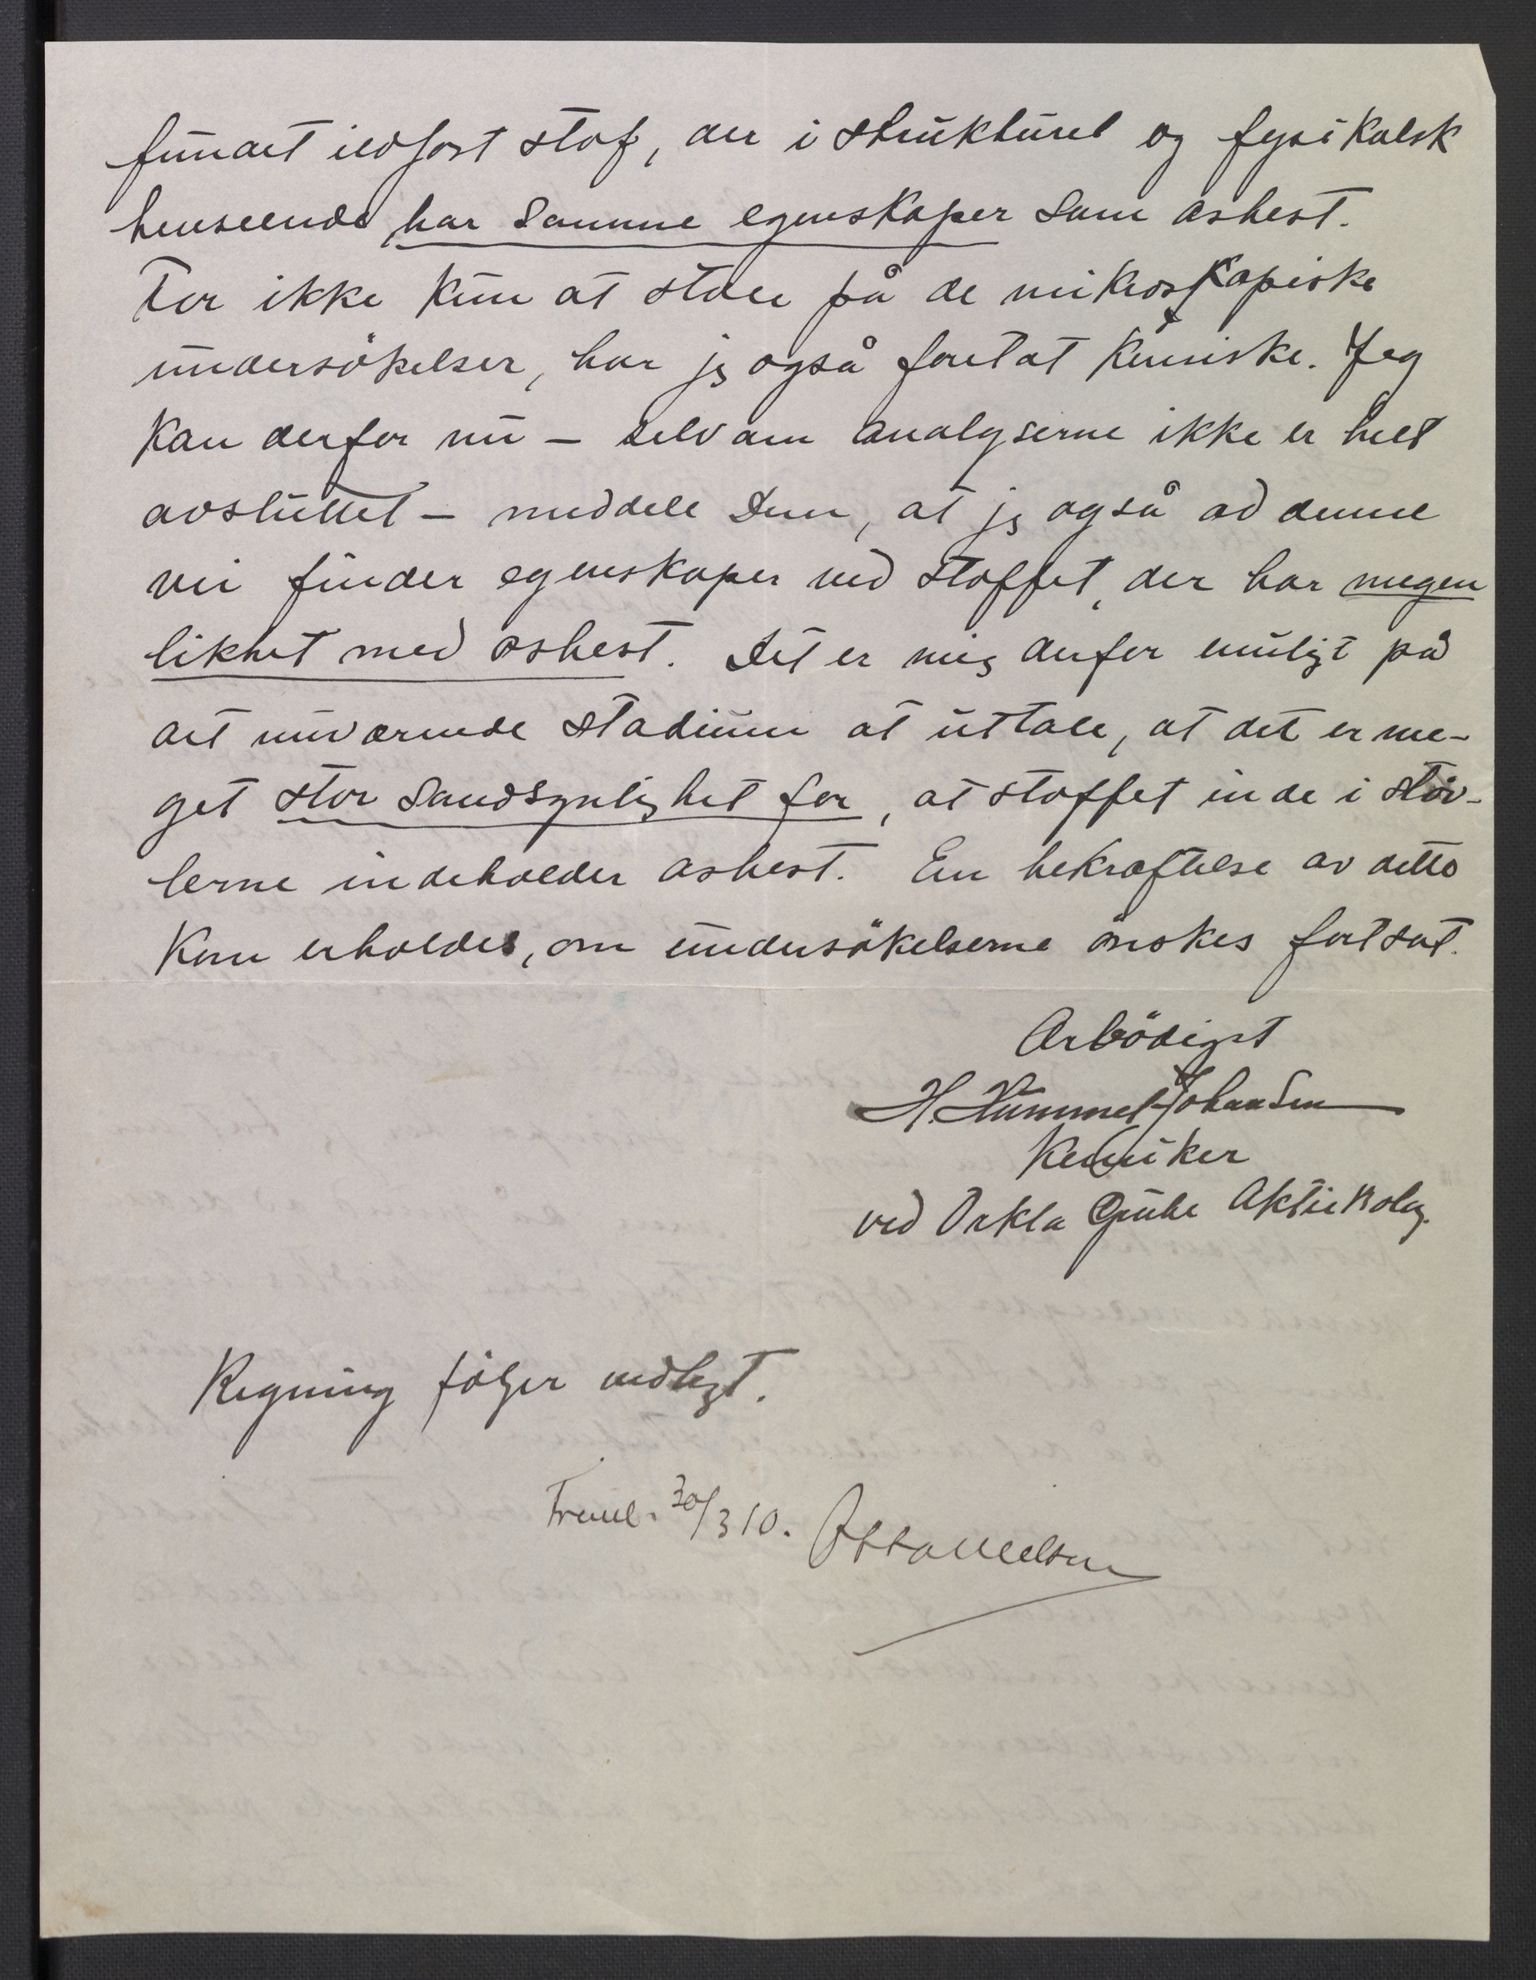 fundet ildfast stof, der i strukturel og fysikalsk
henseende har samme egenskaper som asbest.
For ikke kun at stole på de mikroskopiske
undersökelser, har jeg også foretat kemiske. Jeg
kan derfor nu – selv om analyserne ikke er helt
avsluttet – meddele Dem, at jeg også ad denne
vei finder egenskaper ved stoffet, der har megen
likhet med asbest. Det er mig derfor muligt på
det nuværende stadium at uttale, at det er me-
get stor sandsynlighet for, at stoffet inde i støv-
lerne indeholder asbest. En bekræftelse av dette
kan erholdes, om undersökelserne önskes fortsat.
Ærbödigst
H. Hummel-Johansen
Kemiker
ved Orkla Grube Aktiebolag.
Regning följer vedlagt.
Freml. 30/3 10. Otto Nielsen